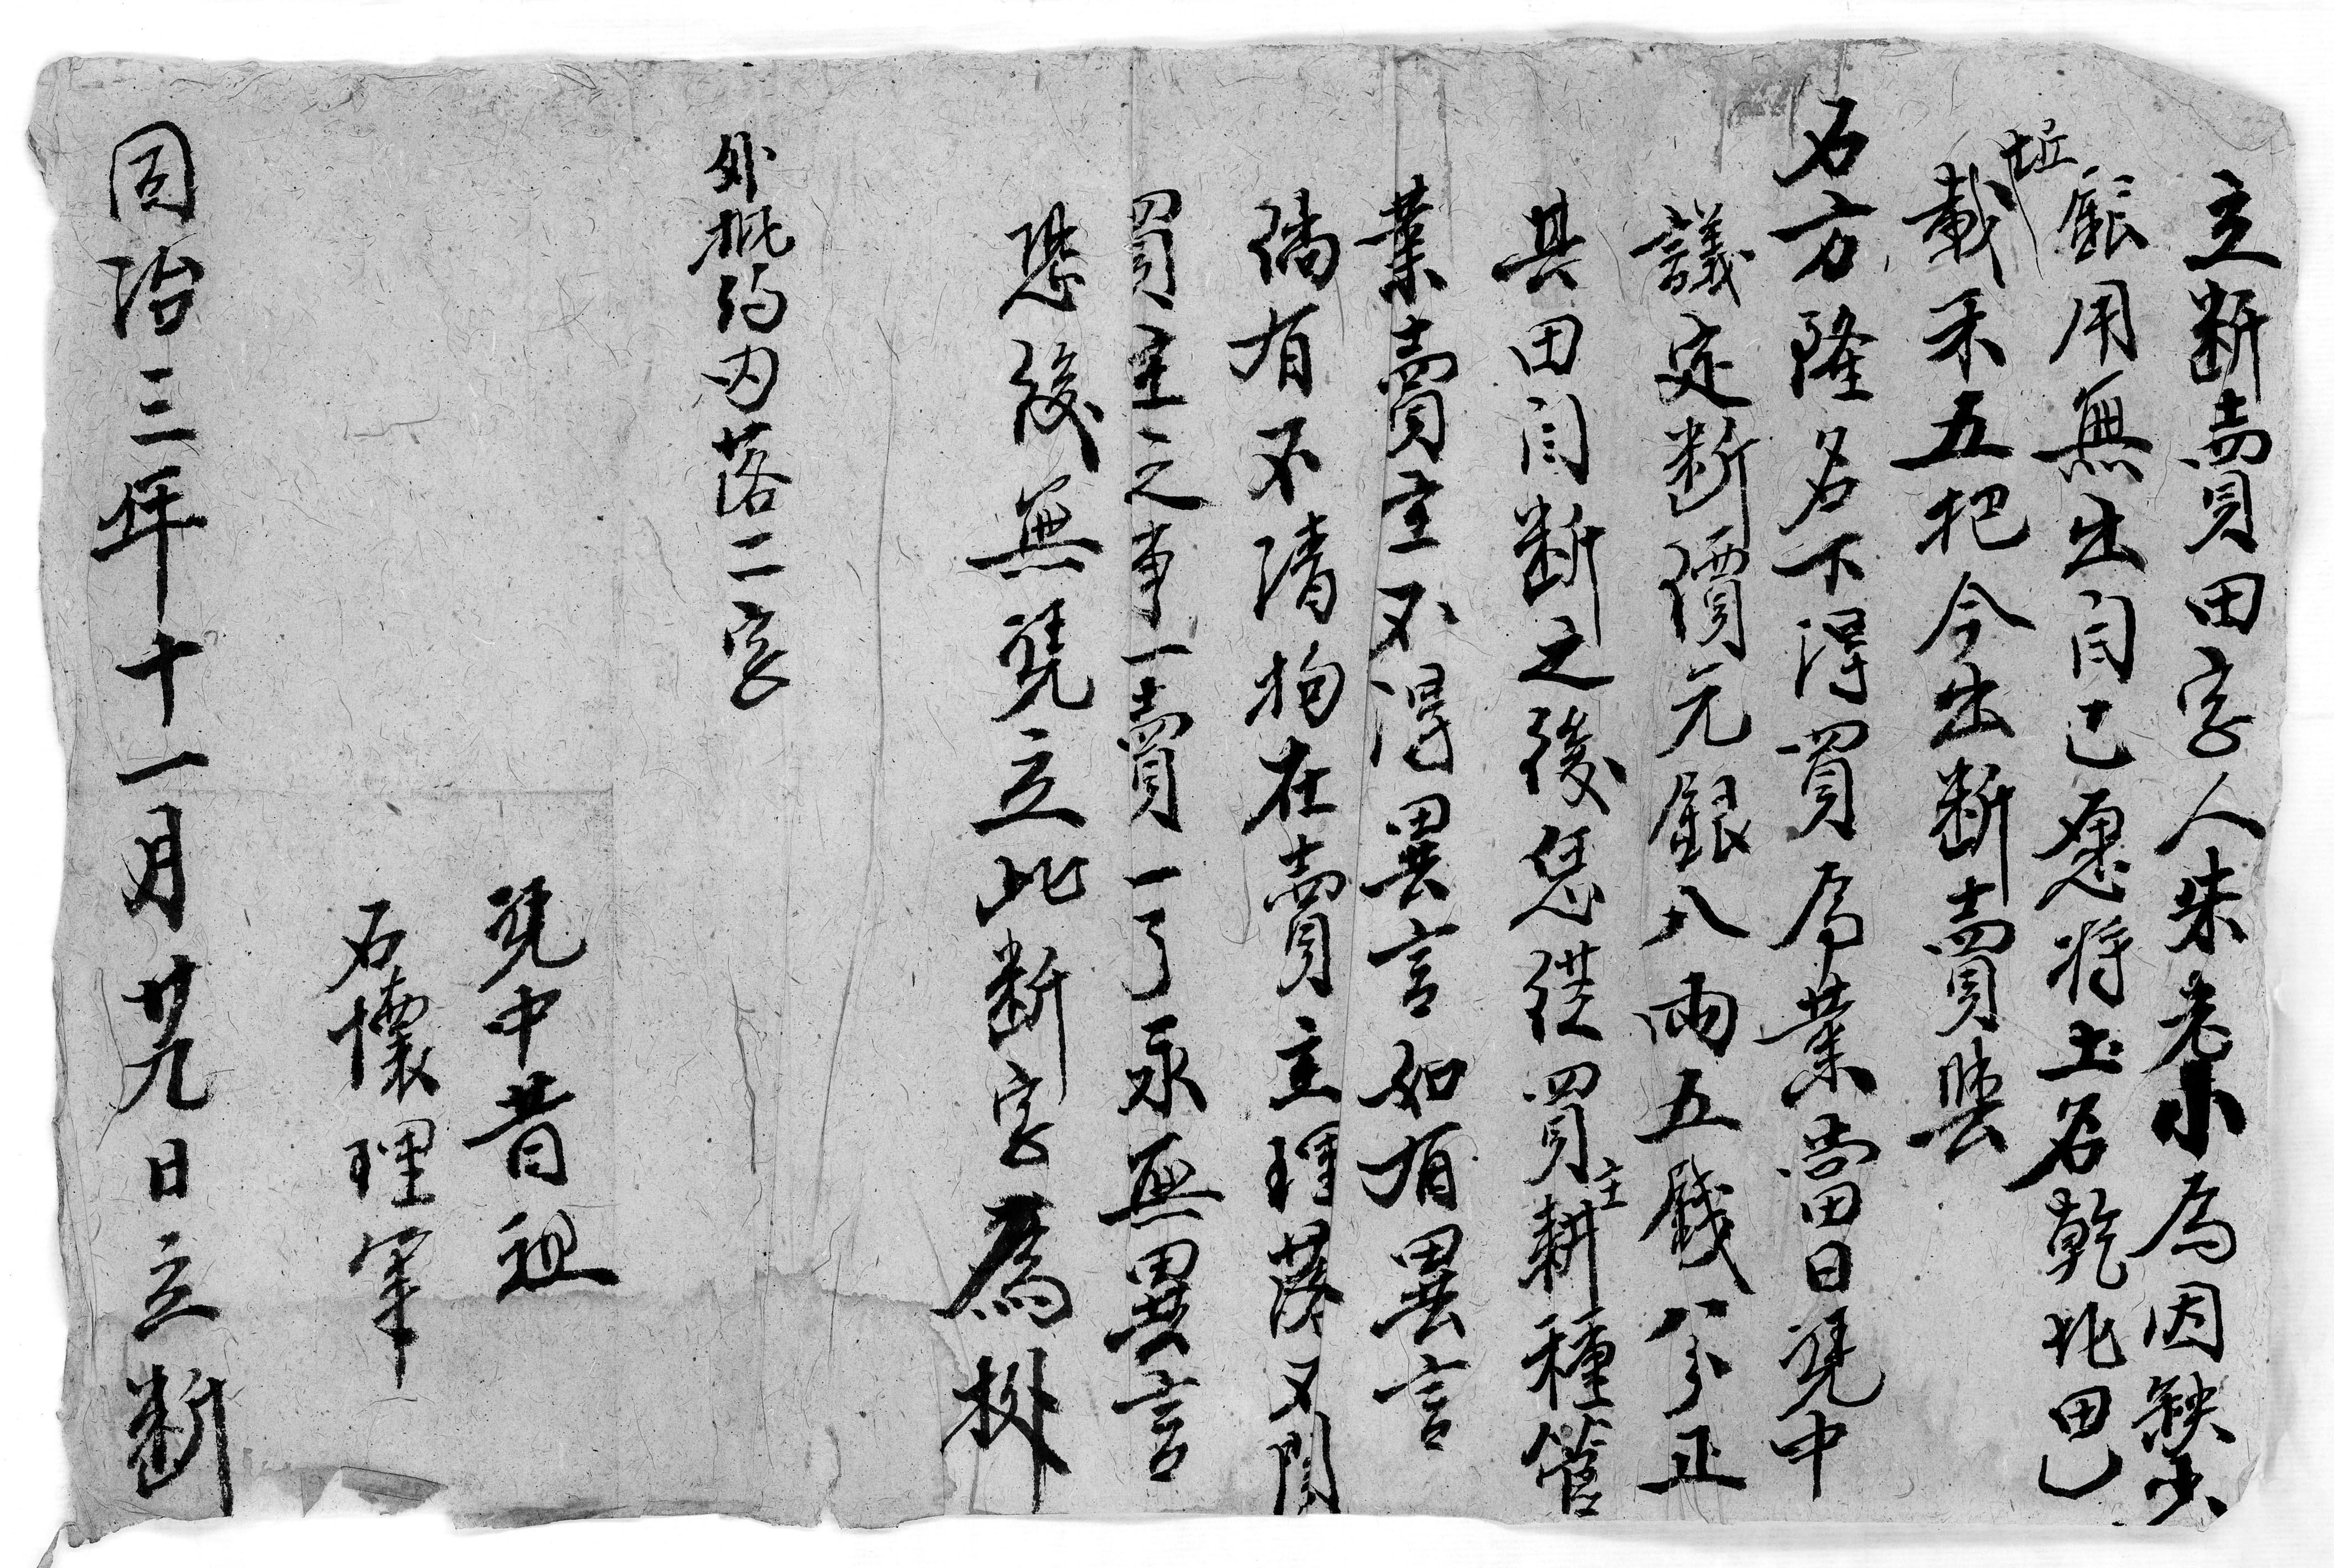 立断賣田字人朱老小為因缺少
銀用無出自己愿将土名乾北田已
坵
載禾五把今出断賣與
石方隆名下淂買為業當日凴中
議定断價元銀八兩五錢八分正
其田自断之後恁從買主耕種管
業賣主不淂異言如有異言
倘有不清拘在賣主理落不関
買主之事一賣一了永無異言
恐後無凴立此断字為拠
外批約内落二字
凴中昔祖
石懷理筆
同治三年十一月廿九日立断